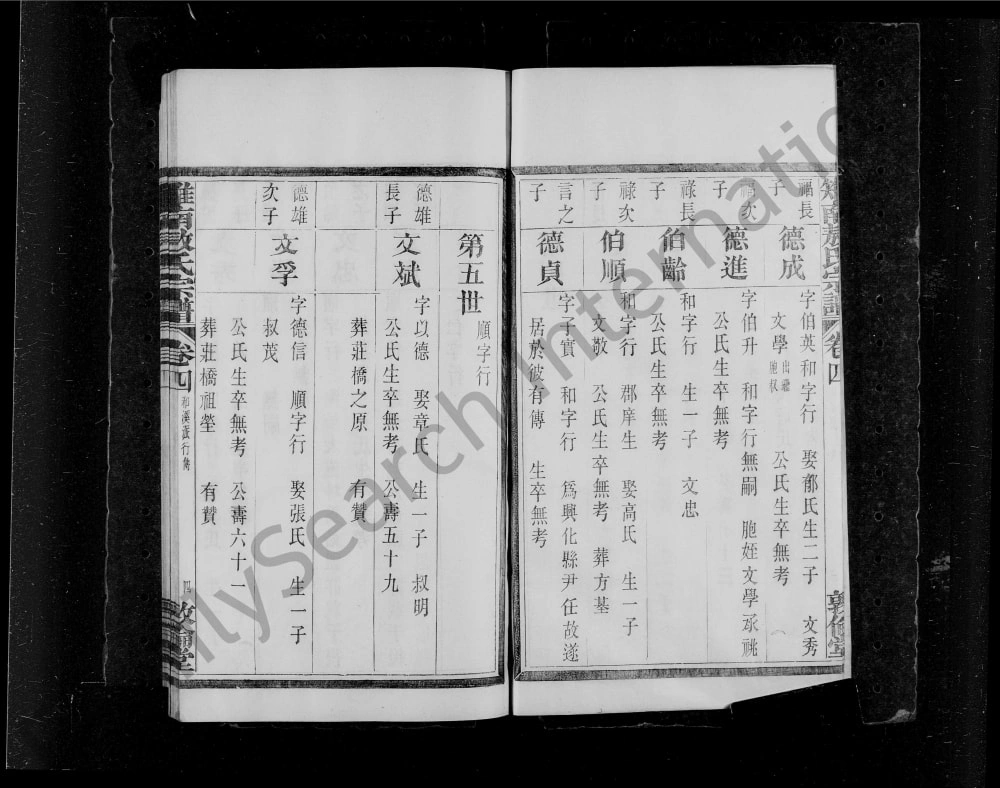 卷四
禍長子
德成
字伯英和字行 娶郁氏生二子 文秀
文學 出繼胞叔 公氏生卒無考
禍次子
德進
字伯升 和字行無嗣 胞姪文學承祧
公氏生卒無考
祿長子
伯齡
和字行 生一子 文忠
公氏生卒無考
祿次子
伯順
和字行 郡庠生 娶高氏 生一子
文敬 公氏生卒無考 葬方基
言之子
德貞
字子實 和字行 為興化縣尹任故遂
居於彼有傳 生卒無考
第五世 順字行
德雄長子
文斌
字以德 娶章氏 生一子 叔明
公氏生卒無考 公壽五十九
葬莊橋之原 有贊
德雄次子
文孚
字德信 順字行 娶張氏 生一子
叔茂
公氏生卒無考 公壽六十一
葬莊橋祖塋 有贊
氏宗譜
卷四
四